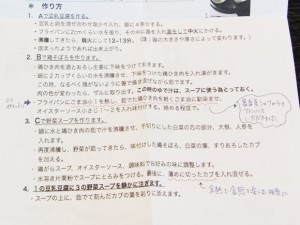 ＊ 作り方
1. Aで豆乳豆腐を作る。
・豆乳と卵を混ぜ合わせ塩少々入れ、器に4等分する。
・フライパンに2cmくらい水を張り、その中に器を入れ蓋をして中火にかける。
・沸騰してきたら、弱火にして12~13分。(注:器の大きさや厚さによって変わります。)
・固まったようであれば出来上がり。
2. Bで鶏そぼろを作ります。
・鶏ひき肉を酒とおろし生姜にて下味をつけておきます。
・鍋に2カップくらいの水を沸騰させ、下味をつけた鶏ひき肉を入れ湯がきます。
この時、なるべく塊がないように箸で細かくほぐしながら茹でます。
肉の色が変わったら、ザルに取ります。この時のゆで汁は、スープに使う為とっておく。
・フライパンにごま油小1を熱し、茹でた鶏ひき肉を軽くごま油に馴染ませ、
オイスターソース小さじ1~2を入れ味付けする。
3. Cで野菜スープを作ります。
・鍋に水と鶏ひき肉の茹で汁を沸騰させ、千切りにした白菜の芯の部分、大根、人参を
入れます。
・再度沸騰し、野菜が茹ってきたら、味付けした鶏そぼろ、白菜の葉、すりおろしたカブ
を加える。
・鶏がらスープ、オイスターソース、調味料でお好みの味に調整します。
・水溶き片栗粉でスープにとろみをつける。最後に、薄めに切ったカブを入れ混ぜる。
4. 1の豆乳豆腐に3の野菜スープを静かに注ぎます。
・スープの上に、茹でて刻んだカブの葉を彩りに添えます。